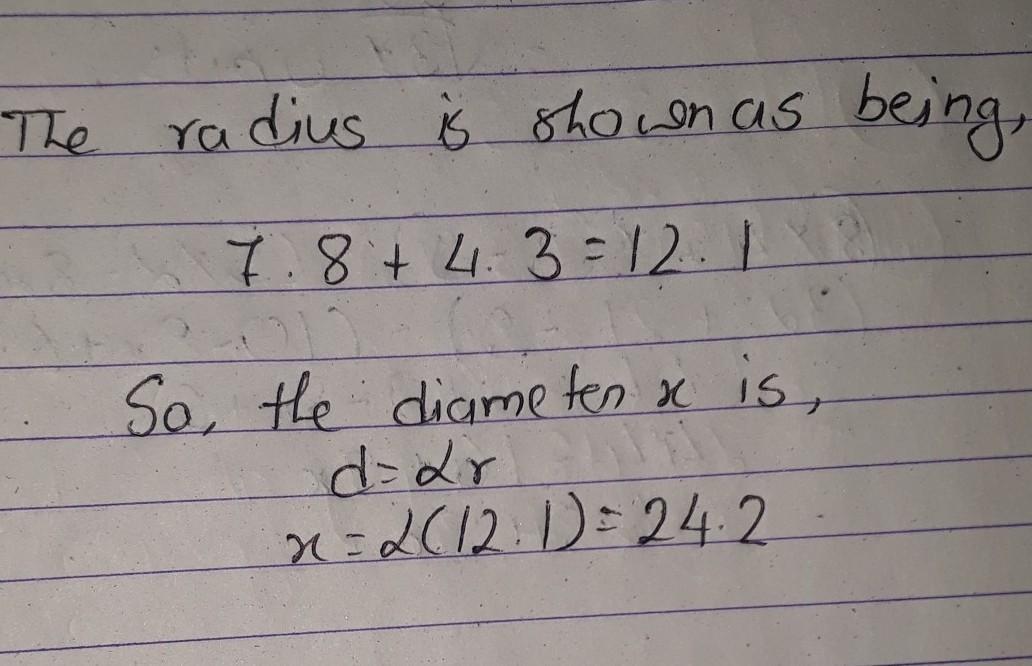 The radius is shown as being,
7.8 + 4.3 = 12.1
So, the diameter x is,
d = 2r
x = 2(12.1) = 24.2